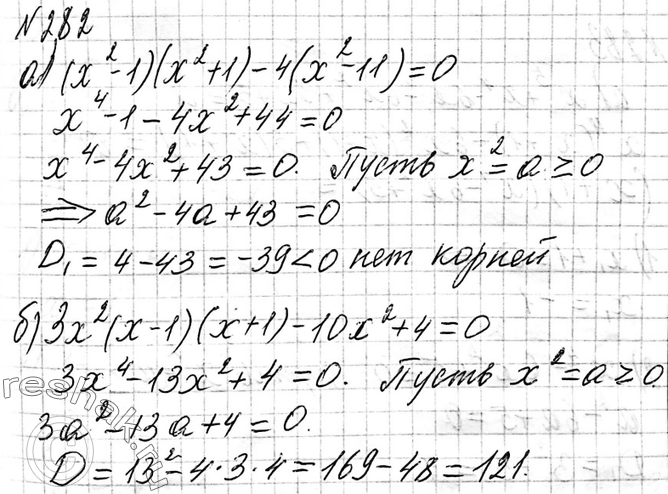 №282
а) (x²-1)(x²+1)-4(x²-11)=0
x⁴-1-4x²+44=0
x⁴-4x²+43=0. Пусть x²=a≥0
⇒a²-4a+43=0
D₁=4-43=-39<0 нет корней
б) 3x²(x-1)(x+1)-10x²+4=0
3x⁴-13x²+4=0. Пусть x²=a≥0
3a²-13a+4=0.
D=13²-4·3·4=169-48=121.
reshak.ru